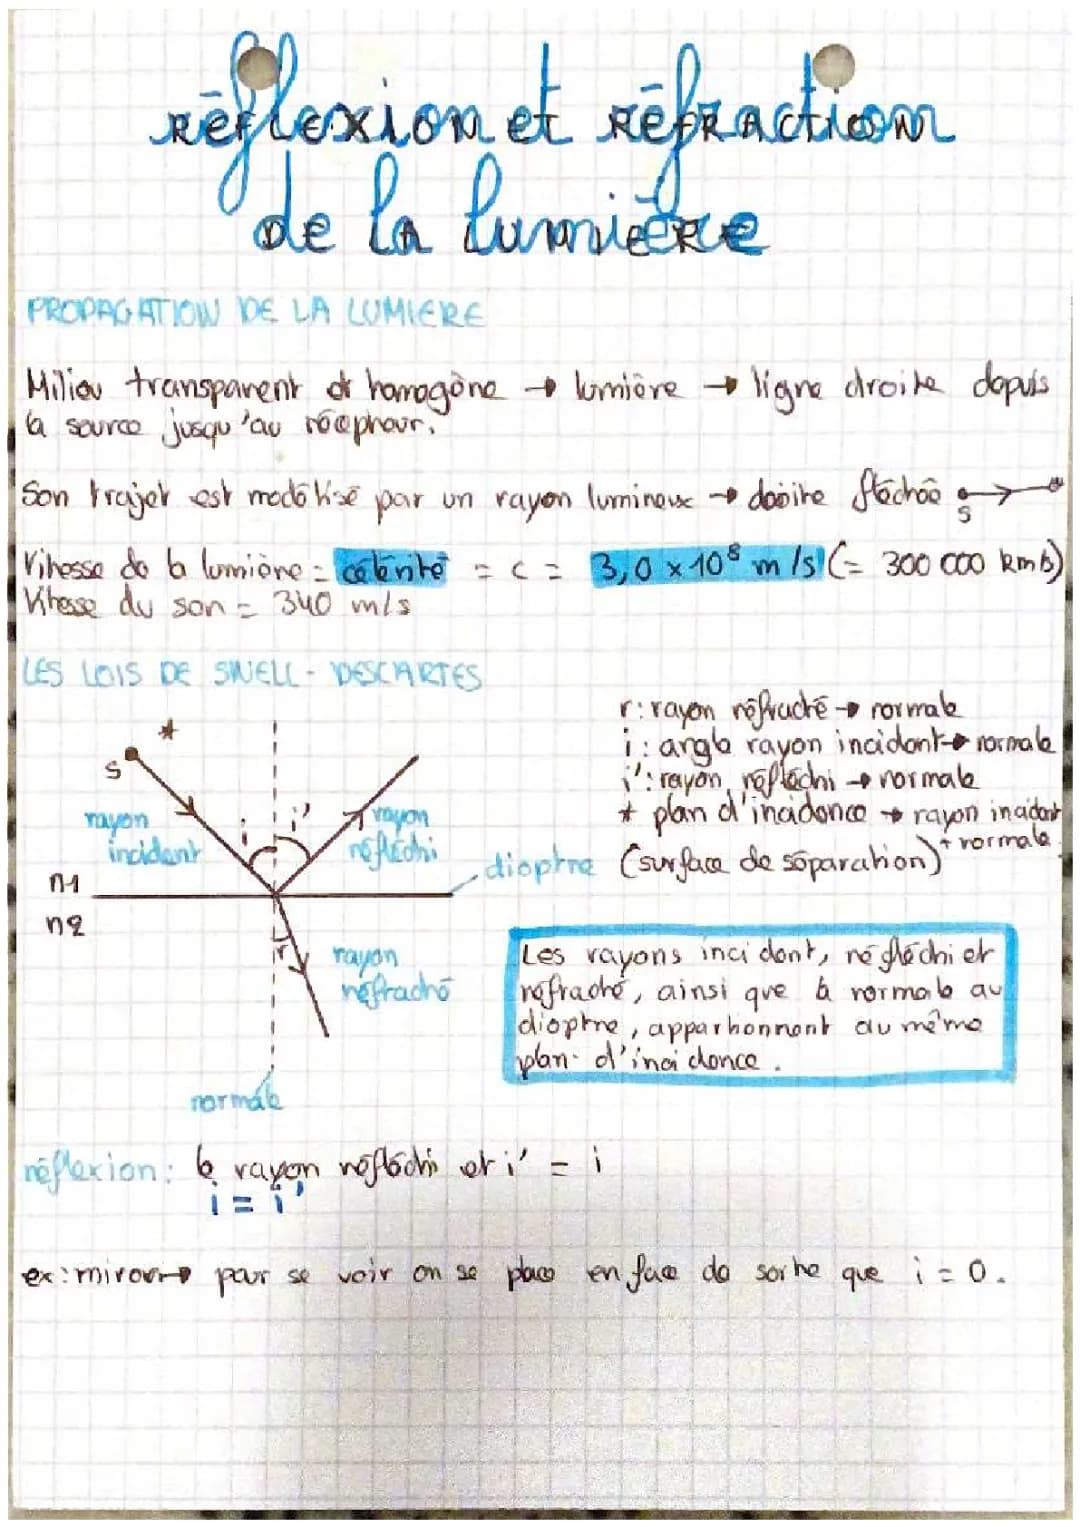 réflexion et réfraction
de la lumière
PROPAGATION DE LA LUMIERE
Milieu transparent et homogène → lumière → ligne droite depuis
la source jusqu'au récepteur.
Son trajet est modélisé par un rayon lumineux → droite fléchée S
Vitesse de la lumière = célérité = c = 3,0 x 10⁸ m/s (= 300 000 km/s)
Vitesse du son = 340 m/s
LES LOIS DE SNELL - DESCARTES
r : rayon réfracté → normale
i : angle rayon incident → normale
i' : rayon réfléchi → normale
* plan d'incidence → rayon incident
+ normale
dioptre (surface de séparation)
*
S
rayon
incident
i
i'
rayon
réfléchi
n1
n2
r
rayon
réfracté
normale
Les rayons incident, réfléchi et
réfracté, ainsi que la normale au
dioptre, appartiennent au même
plan d'incidence.
réflexion : le rayon réfléchi et i' = i
i = i'
ex : miroir → pour se voir on se place en face de sorte que i = 0.